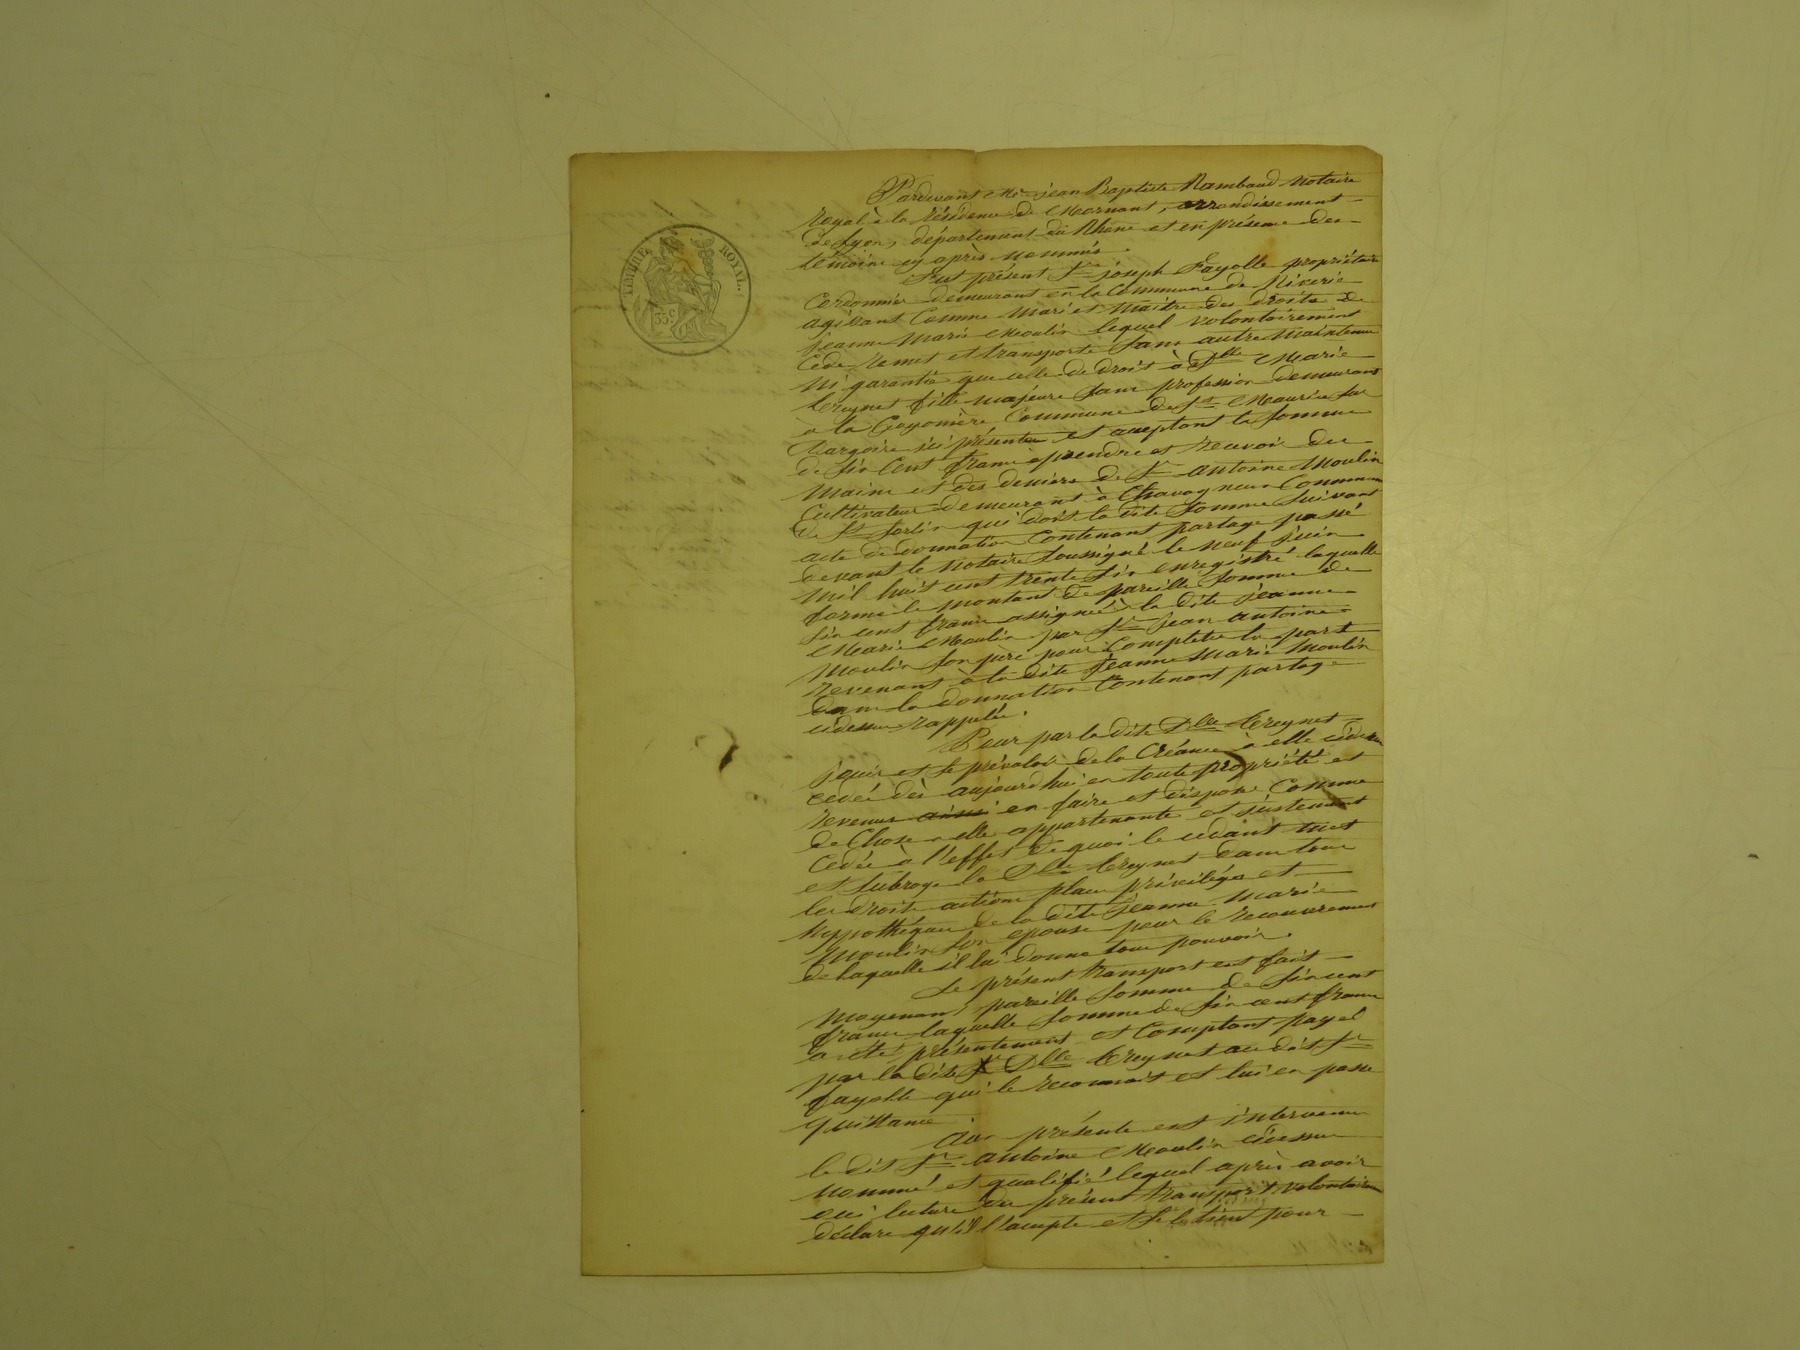 TIMBRE ROYAL.
35c
Pardevant Me jean Baptiste Rambaud Notaire
Royal à la résidence de Mornant, arrondissement
de Lyon, département du Rhône et en présence des
témoins cy après nommés.
Fut présent Sr joseph Fayolle propriétaire
Cordonnier demeurant en la Commune de Riverie
agissant Comme Mari et Maitre des droits de
jeanne Marie Moulin lequel volontairement
Cède remet et transporte sans autre Maintenue
Ni garantie que celle de droit à Dlle Marie
fille majeure sans profession demeurant
à la Commune de St Maurice sur
Dargoire ici présente et acceptant la somme
de six Cent francs à prendre et recevoir des
mains et des deniers de Sr antoine Moulin
Cultivateur demeurant à Commune
de St Sorlin qui doit la dite somme suivant
acte de donnation Contenant partage passé
devant le Notaire soussigné le neuf juin
Mil huit cent trente six enregistré laquelle
forme le montant de pareille somme de
six cent francs assignée à la dite jeanne
Marie Moulin par Sr jean antoine
Moulin son père pour Completer la part
revenant à la dite jeanne Marie Moulin
dans la donnation Contenant partage
cidessus rappelée.
Pour par la dite Dlle
jouir et se prévaloir de la Créance à elle cidessus
cedée dès aujourd'hui en toute propriété et
revenus ainsi en faire et dispose Comme
de Chose a elle appartenante et justement
Cedée à l'effet de quoi le cédant met
et subroge la Dlle dans tous
les droits actions places privilèges et
hypothéques de la dite jeanne Marie
Moulin son epouse pour le recouvrement
de laquelle il lui donne tous pouvoirs.
Le présent transport est fait
Moyenant pareille somme de six cent
francs laquelle somme de six cent francs
a été présentement et Comptant payé
par la dite Dlle au dit Sr
fayolle qui le reconnait et lui en passe
quittance
Aux présentes est intervenu
le dit Sr antoine Moulin cidessus
nommé et qualifié lequel après avoir
oui lecture du présent transport volontairement
déclare qu'il l'accepte et se le tient pour